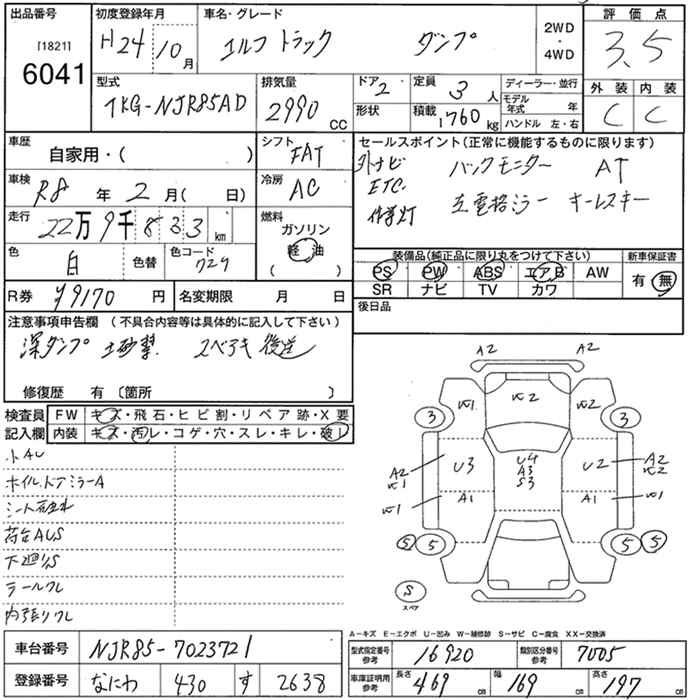 出品番号 [1821] 6041
初度登録年月 H24 10月
車名・グレード エルフ トラック ダンプ
2WD・4WD
評価点 3.5
型式 TKG-NJR85AD
排気量 2990 CC
ドア 2
形状
定員 3人
積載 1760 kg
ディーラー・並行
モデル年式 年
ハンドル 左・右
外装 C
内装 C
車歴 自家用・( )
シフト FAT
車検 R8年 2月( 日)
冷房 AC
走行 22万9千833km
燃料 ガソリン 軽油 ( )
色 白
色替
色コード 729
R券 ¥9170円
名変期限 月 日
セールスポイント(正常に機能するものに限ります)
外ナビ バックモニター AT
ETC
作業灯 左電格ミラー キーレスキー
装備品(純正品に限り丸をつけて下さい)
PS PW ABS エアB AW
SR ナビ TV カワ
新車保証書 有・無
後日品
注意事項申告欄 (不具合内容等は具体的に記入して下さい)
深ダンプ 土砂禁 スペアキー後送
修復歴 有 〔箇所 〕
検査員記入欄
FW キズ・飛石・ヒビ割・リペア跡・X要
内装 キズ・汚レ・コゲ・穴・スレ・キレ・破レ
小AU
ホイル、ドアミラーA
荷台AUS
下廻りS
内張りワレ
A2 A2
W1 W2 W2
3 3
A2 W1 U3 U4 A3 S3 U2 A2 W2
W1 A1 A1 W1
5 5 5 5
S スペア
A-キズ E-エクボ U-凹み W-補修跡 S-サビ C-腐食 XX-交換済
車台番号 NJR85-7023721
型式指定番号 参考 16920
類別区分番号 参考 7005
登録番号 なにわ 430 す 2638
車庫証明用 参考 長さ 469cm 幅 169cm 高さ 197cm